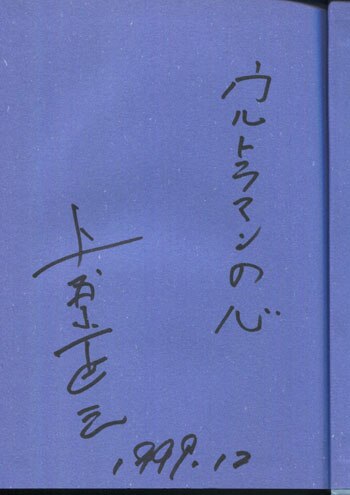 ウルトラマンの心
上原正三
1999.12